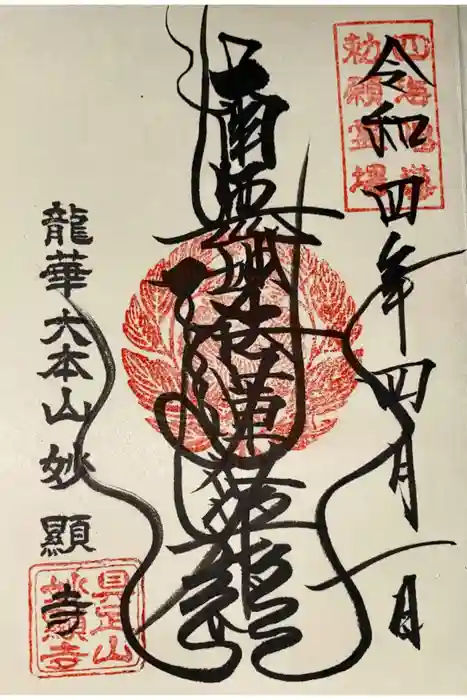 四海唱導
勅願霊場
令和四年四月一日
南無妙法蓮華経
龍華 大本山 妙顯寺
具足山
妙顯寺